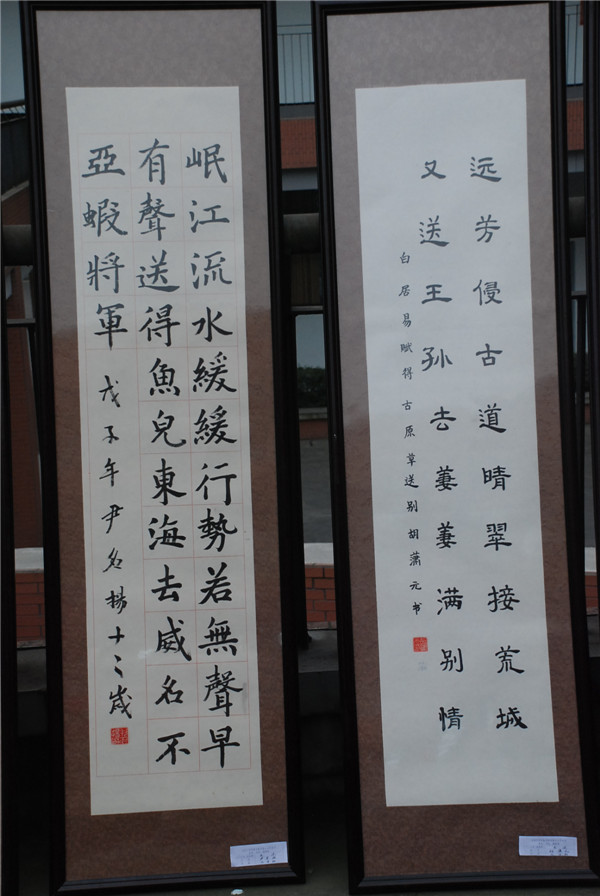 岷江流水緩緩行勢若無聲早
有聲送得魚兒東海去威名不
亞蝦將軍 戊子年尹名揚十二歲
远芳侵古道晴翠接荒城
又送王孙去萋萋满别情
白居易赋得古原草送别胡潇元书